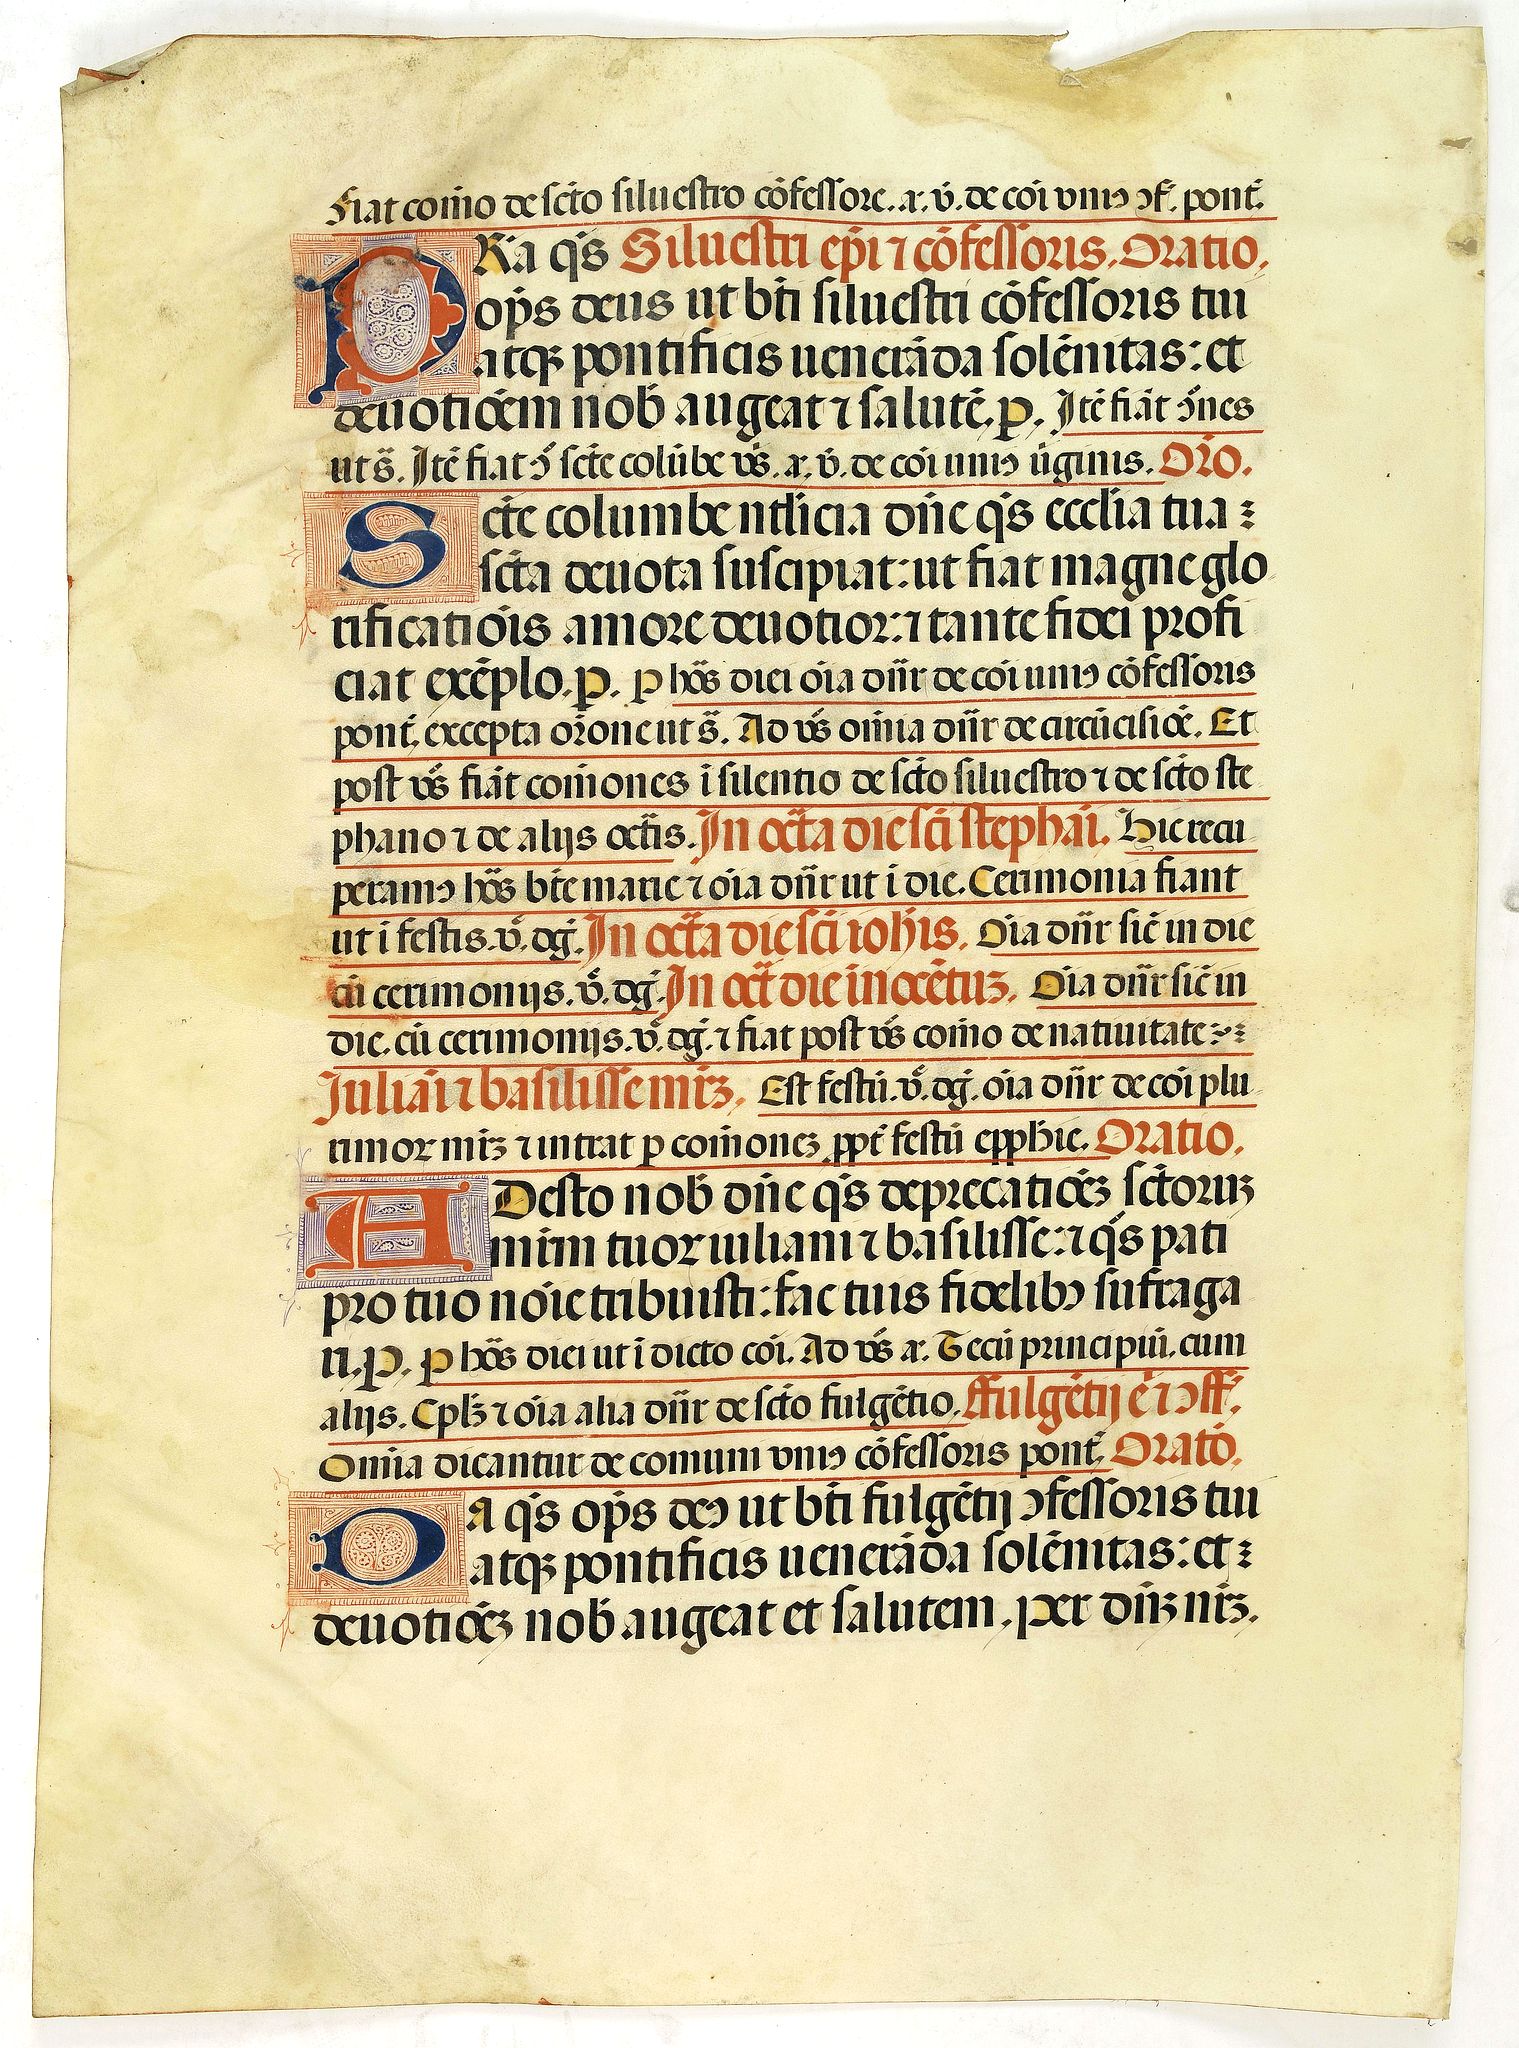 fiat com̄o de scto siluestro cōfessore. a. v̄. de coi vniꝰ ɔf. pont̄.
DRa q̄s Siluestri ep̄i ⁊ cōfessoris. Oratio.
op̄s deus ut bti siluestri cōfessoris tui
atqꝫ pontificis uenerāda solēnitas: et
deuotiōem nob̄ augeat ⁊ salutē. p. Itē fiāt ōnes
ut s̄. Itē fiat ɔ̄ scte colūbe vs̄. a. v̄. de coi uniꝰ ūginis. Oro.
Scte columbe ntlicia dn̄e q̄s ecclia tua
scta deuota suscipiat: ut fiat magne glo
rificatiōis amore deuotior: ⁊ tante fidei profi
ciat exēplo. p. P hōs diei oīa dn̄r de coi uniꝰ cōfessoris
pont̄. excepta orōne ut s̄. Ad vs̄ omīa dn̄r de circūcisiōe. Et
post vs̄ fiāt com̄ones ī silentio de scto siluestro ⁊ de scto ste
phano ⁊ de alijs octīs. In octā die scī stephāi. Hic recu
peramꝰ hōs bte marie ⁊ oīa dn̄r ut ī die. Cerimonia fiant
ut ī festis. v̄. dḡ. In octā die scī ioh̄is. Oīa dn̄r sic̄ in die
cū cerimonijs. v̄. dḡ. In oct̄ die inocētuꝫ. Oīa dn̄r sic̄ in
die. cū cerimonijs. v̄. dḡ. ⁊ fiat post vs̄ com̄o de natiuitate
Juliāi ⁊ basilisse mr̄ꝫ. Est festū. v̄. dḡ. oīa dn̄r de coi plu
rimor mr̄ꝫ ⁊ intrat p com̄oneꝫ ppt̄ festū epph̄ie. Oratio.
ADesto nob̄ dn̄e q̄s deprecatiōeꝫ sctoruꝫ
mr̄m tuor iuliani ⁊ basilisse: ⁊ q̄s pati
pro tuo noīe tribuisti: fac tuis fidelibꝰ sufraga
ri. p. P hōs diei ut ī dicto coi. Ad vs̄ a. Tecū principiū. cum
alijs. Cplꝫ ⁊ oīa alia dn̄r de scto fulgētio. ffulgētij ē ⁊ ɔff.
Omīa dicantur de comum vniꝰ cōfessoris pont̄. Oratō.
DA q̄s op̄s deꝰ ut bti fulgētij ɔfessoris tui
atqꝫ pontificis uenerāda solēnitas: et
deuotiōeꝫ nob̄ augeat et salutem. per dn̄ꝫ nr̄ꝫ.